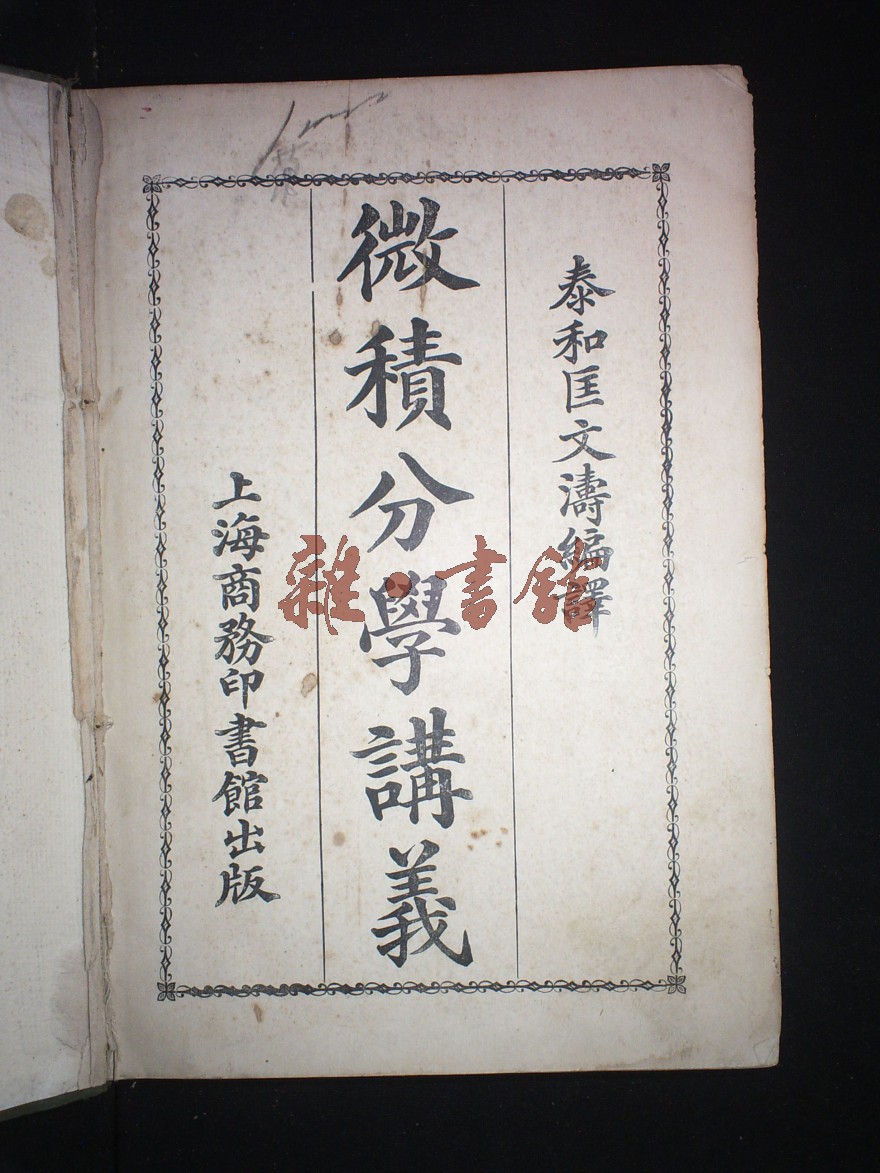 泰和匡文濤編譯
微積分學講義
上海商務印書館出版
雜·書館